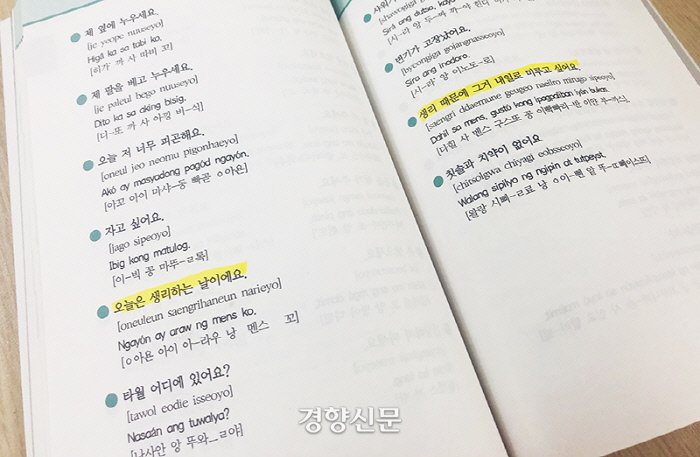 제 옆에 누우세요.
[je yeope nuuseyo]
Higâ ka sa tabi ko.
[히가 까 사 따비 꼬]
제 팔을 베고 누우세요.
[je paleul bego nuuseyo]
Dito ka sa aking bisig.
[디-또 까 사 아낑 비-식]
오늘 저 너무 피곤해요.
[oneul jeo neomu pigonhaeyo]
Akó ay masyadong pagód ngayón.
[아꼬 아이 마샤-동 빠곧 ㅇ아욘]
자고 싶어요.
[jago sipeoyo]
Ibig kong matulog.
[이-빅 꽁 마뚜-ㄹ록]
오늘은 생리하는 날이에요.
[oneuleun saengrihaneun narieyo]
Ngayón ay araw ng mens ko.
[ㅇ아욘 아이 아-라우 낭 멘스 꼬]
타월 어디에 있어요?
[tawol eodie isseoyo]
Nasaán ang tuwalya?
[나사안 앙 뚜와-ㄹ야]
샤워
Sirâ ang dutsa,
변기가 고장났어요.
[byeongiga gojangnasseoyo]
Sirâ ang inodoro.
[시-라' 앙 이노도-로]
생리 때문에 그거 내일로 미루고 싶어요.
[saengri ddaemune geugeo naeillo mirugo sipeoyo]
Dahil sa mens, gustó kong ipagpaliban iyán bukas.
[다힐 사 멘스 구스또 꽁 이빡빠리-반 이얀 부-까스]
칫솔과 치약이 없어요
[chitsolgwa chiyagi eobsseoyo]
Walang sipilyo ng ngipin at tutpeyst.
경향신문